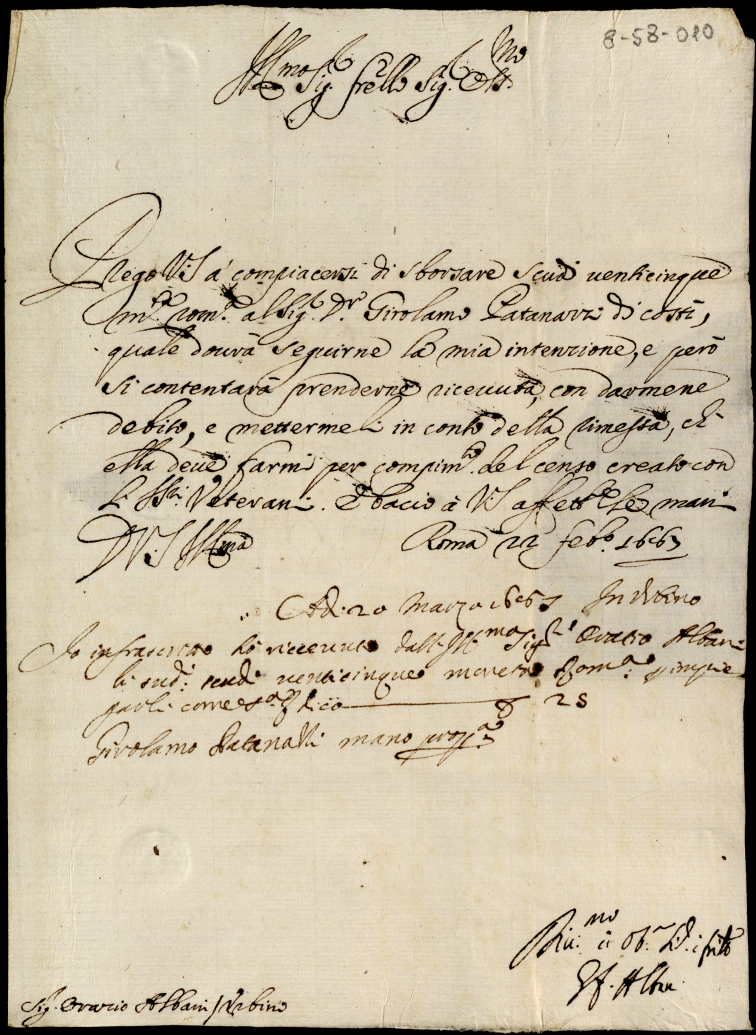 8-58-010
Ill.mo Sig. frello Sig. Oss.mo
Prego V.S. à compiacersi di sborsare scudi venticinque
m.ta rom.a al Sig. D.r Girolamo Patanazzi di costì,
quale dovrà seguirne la mia intenzione, e però
si contentarà prenderne ricevuta, con darmene
debito, e mettermeli in conto della rimessa, ch'
ella deve farmi per compim.to del censo creato con
li SS.ri Veterani. E bacio à V.S. affett.te le mani
D V.S. Ill.ma Roma 22 feb.o 1665
Adi 20 Marzo 1665 In Urbino
Io infrascritto hò ricevuto dall' Ill.mo Sig.r Oratio Albani
li sud.i scudi venticinque moneta Rom.a
dico 25
Girolamo Patanazzi mano prop.a
Albani
Sig. Orazio Albani / Urbino